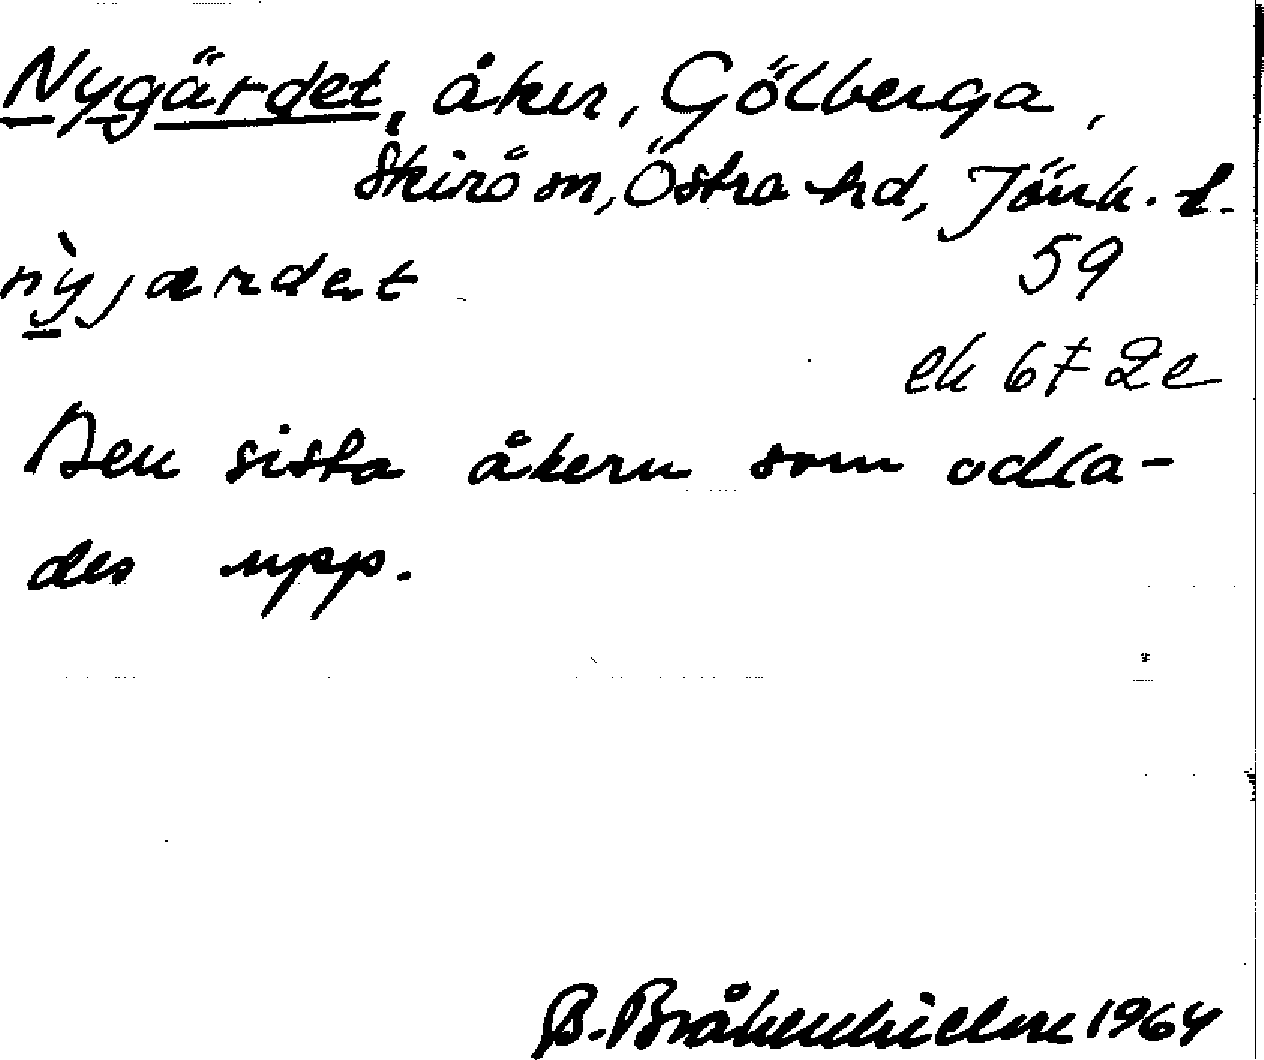 Nygärdet, åker, Gölberga,
Skirö sn, Östra hd, Jönk. l.
nỳjærdet 59
ek 6F 2e
Den sista åkern som odla-
des upp.
B. Bråkenhielm 1964